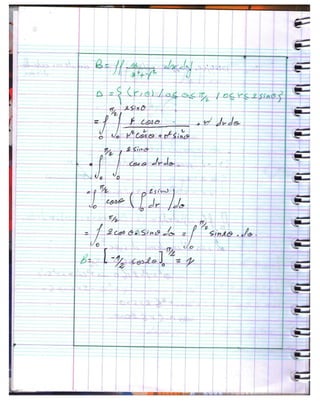 B = ∬ x/(x²+y²) dx dy
Δ = {(r,θ) / 0≤θ≤π/2 / 0≤r≤2sinθ}
= ∫₀^{π/2} ∫₀^{2sinθ} r cosθ/(r²cos²θ + r²sin²θ) · r dr dθ
= ∫₀^{π/2} ∫₀^{2sinθ} cosθ dr dθ.
= ∫₀^{π/2} cosθ (∫₀^{2sinθ} dr) dθ
= ∫₀^{π/2} 2cosθ sinθ dθ = ∫₀^{π/2} sin2θ · dθ.
B = [-1/2 cos2θ]₀^{π/2} = 1